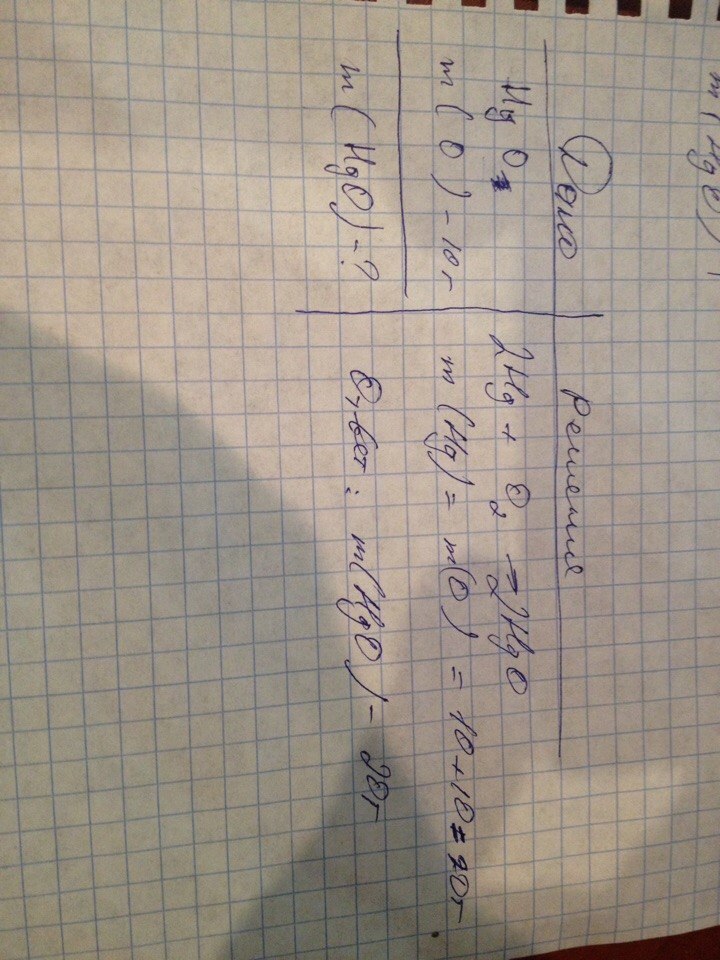 m(HgO)
Дано
HgO
m(O) - 10г
m(HgO) - ?
Решение
2Hg + O₂ = 2HgO
m(Hg) = m(O) = 10+10=20г
Ответ: m(HgO) - 20г